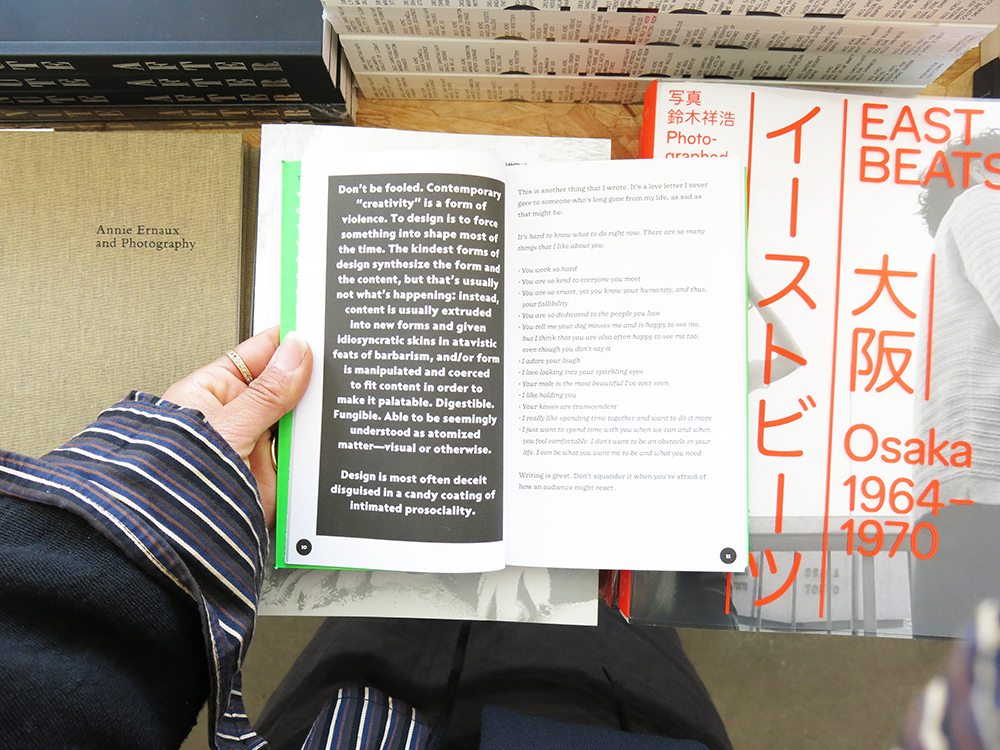 Annie Ernaux
and Photography
Don't be fooled. Contemporary
"creativity" is a form of
violence. To design is to force
something into shape most of
the time. The kindest forms of
design synthesize the form and
the content, but that's usually
not what's happening: instead,
content is usually extruded
into new forms and given
idiosyncratic skins in atavistic
feats of barbarism, and/or form
is manipulated and coerced
to fit content in order to
make it palatable. Digestible.
Fungible. Able to be seemingly
understood as atomized
matter—visual or otherwise.
Design is most often deceit
disguised in a candy coating of
intimated prosociality.
10
This is another thing that I wrote. It's a love letter I never
gave to someone who's long gone from my life, as sad as
that might be:
It's hard to know what to do right now. There are so many
things that I like about you:
• You work so hard
• You are so kind to everyone you meet
• You are so smart, yet you know your humanity, and thus,
your fallibility
• You are so dedicated to the people you love
• You tell me your dog misses me and is happy to see me,
but I think that you are also often happy to see me too,
even though you don't say it
• I adore your laugh
• I love looking into your sparkling eyes
• Your mole is the most beautiful I've ever seen
• I like holding you
• Your kisses are transcendent
• I really like spending time together and want to do it more
• I just want to spend time with you when we can and when
you feel comfortable. I don't want to be an obstacle in your
life. I can be what you want me to be and what you need
Writing is great. Don't squander it when you're afraid of
how an audience might react.
11
写真
鈴木祥浩
Photo-
graphed
イーストビーツ
EAST
BEATS
大阪
Osaka
1964–
1970
OSAKA
TOKYO